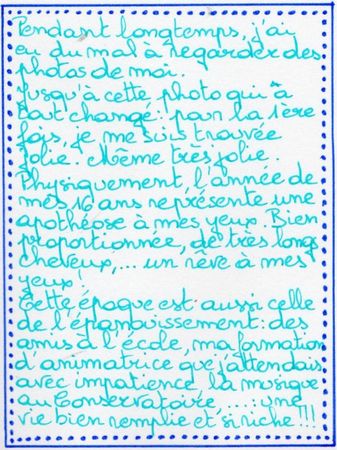 Pendant longtemps, j'ai
eu du mal à regarder des
photos de moi.
Jusqu'à cette photo qui a
tout changé: pour la 1ère
fois, je me suis trouvée
jolie. Même très jolie.
Physiquement, l'année de
mes 16 ans représente une
apothéose à mes yeux. Bien
proportionnée, de très longs
cheveux,... un rêve à mes
yeux!
Cette époque est aussi celle
de l'épanouissement: des
amis à l'école, ma formation
d'animatrice que j'attendais
avec impatience, la musique
au Conservatoire,..... une
vie bien remplie et si riche!!!